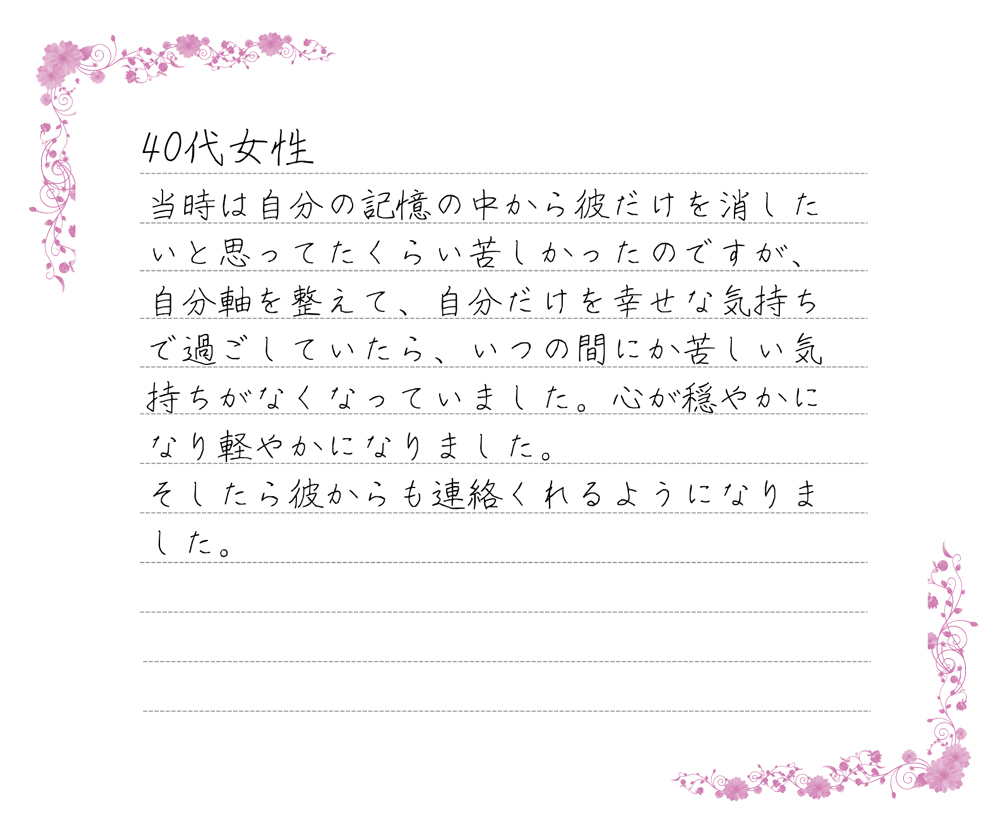 40代女性
当時は自分の記憶の中から彼だけを消した
いと思ってたくらい苦しかったのですが、
自分軸を整えて、自分だけを幸せな気持ち
で過ごしていたら、いつの間にか苦しい気
持ちがなくなっていました。心が穏やかに
なり軽やかになりました。
そしたら彼からも連絡くれるようになりま
した。